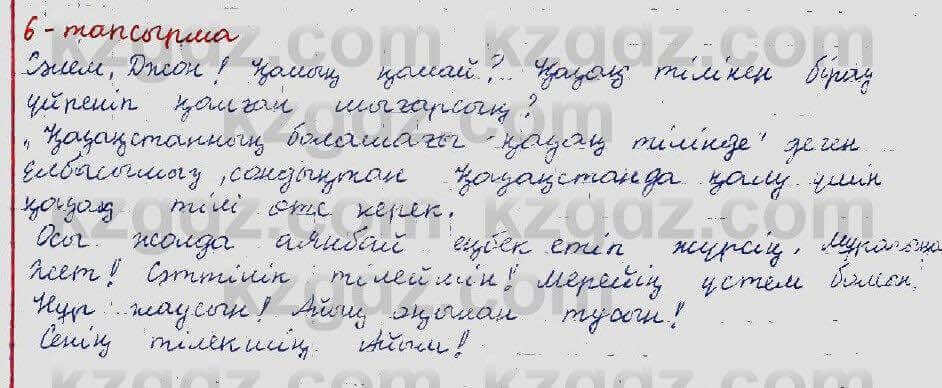 6-тапсырма
Сәлем, Джон! Қалың қалай? Қазақ тілінен біраз
үйреніп қалған шығарсың?
"Қазақстанның болашағы - қазақ тілінде" деген
Елбасымыз, сондықтан Қазақстанда қалу үшін
қазақ тілі өте керек.
Осы жолда аянбай еңбек етіп жүрсің. Мұратыңа
жет! Сәттілік тілеймін! Мерейің үстем болсын!
Нұр жаусын! Айың оңынан тусын!
Сенің тілекшің Айым!
kzgdz.com